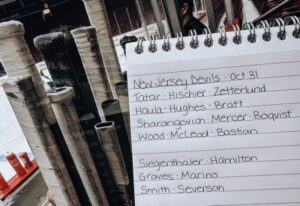 New Jersey Devils · Oct. 31
Tatar · Hischier · Zetterlund
Haula · Hughes · Bratt
Sharangovich · Mercer · Boqvist
Wood · McLeod · Bastian
Siegenthaler · Hamilton
Graves · Marino
Smith · Severson